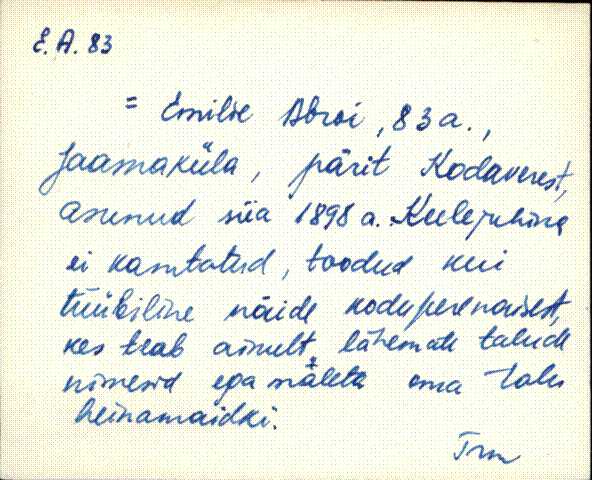 E. A. 83
= Emilie Abroi, 83 a.,
Jaamaküla, pärit Kodaverest,
asunud siia 1898 a. Keelejuhina
ei kasutatud, toodud kui
tüübiline näide koduperenaisest,
kes teab ainult lähemate talude
nimesid ega mäleta oma talu
heinamaidki.